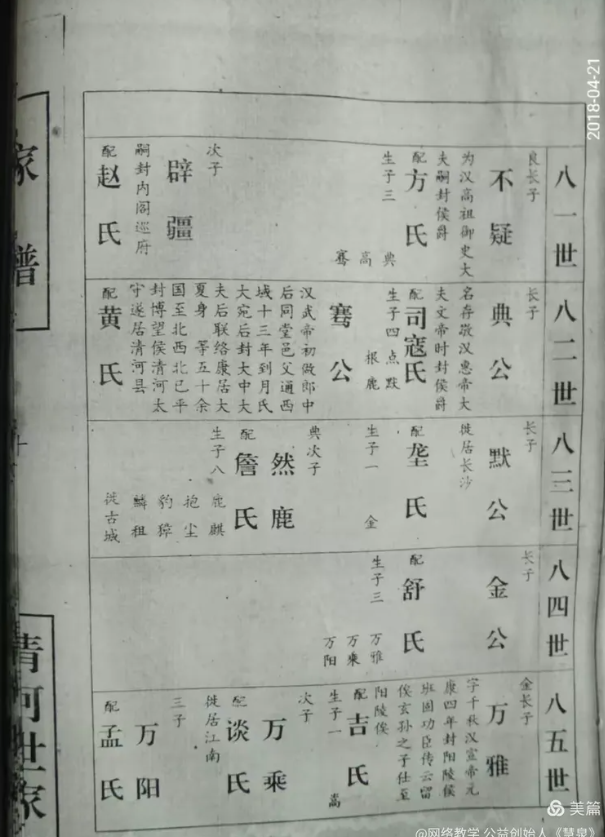 八一世
良长子
不疑
为汉高祖御史大
夫嗣封侯爵
配
方氏
生子三
典
高
骞
次子
辟疆
嗣封内阁巡府
配
赵氏
八二世
长子
典公
名存敬汉惠帝大
夫文帝时封侯爵
配
司寇氏
生子四
点默
根鹿
骞公
汉武帝初做郎中
后同堂邑父通西
域十三年到月氏
大宛后封大中大
夫后联络康居大
夏身等五十余
国至北西北已平
封博望侯清河太
守遂居清河县
配
黄氏
八三世
长子
默公
徙居长沙
配
垄氏
生子一
金
典次子
然鹿
配
詹氏
生子八
鹿麒
抱尘
豹獐
麟祖
徙古城
八四世
长子
金公
配
舒氏
生子三
万雅
万乘
万阳
八五世
金长子
万雅
字千秋汉宣帝元
康四年封阳陵侯
班固功臣传云留
侯玄孙之子仕至
阳陵侯
配
吉氏
生子一
嵩
次子
万乘
配
谈氏
徙居江南
三子
万阳
配
孟氏
家谱
清河世家
2018-04-21
美篇
@网络教学 公益创始人《慧泉》